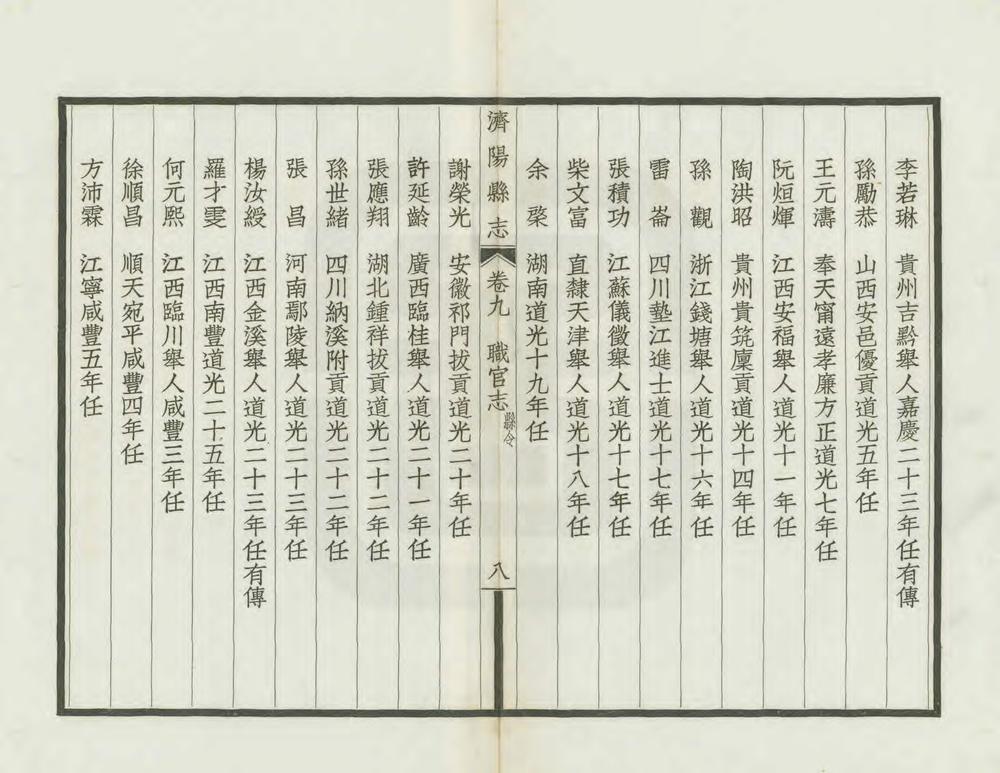 李若琳 貴州吉黔舉人嘉慶二十三年任有傳
孫勵恭 山西安邑優貢道光五年任
王元濤 奉天甯遠孝廉方正道光七年任
阮烜煇 江西安福舉人道光十一年任
陶洪昭 貴州貴筑廩貢道光十四年任
孫觀 浙江錢塘舉人道光十六年任
雷崙 四川墊江進士道光十七年任
張積功 江蘇儀徵舉人道光十七年任
柴文富 直隸天津舉人道光十八年任
余棨 湖南道光十九年任
濟陽縣志 卷九 職官志 縣令 八
謝榮光 安徽祁門拔貢道光二十年任
許延齡 廣西臨桂舉人道光二十一年任
張應翔 湖北鍾祥拔貢道光二十二年任
孫世緒 四川納溪附貢道光二十二年任
張昌 河南鄢陵舉人道光二十三年任
楊汝綬 江西金溪舉人道光二十三年任有傳
羅才雯 江西南豐道光二十五年任
何元熙 江西臨川舉人咸豐三年任
徐順昌 順天宛平咸豐四年任
方沛霖 江寧咸豐五年任